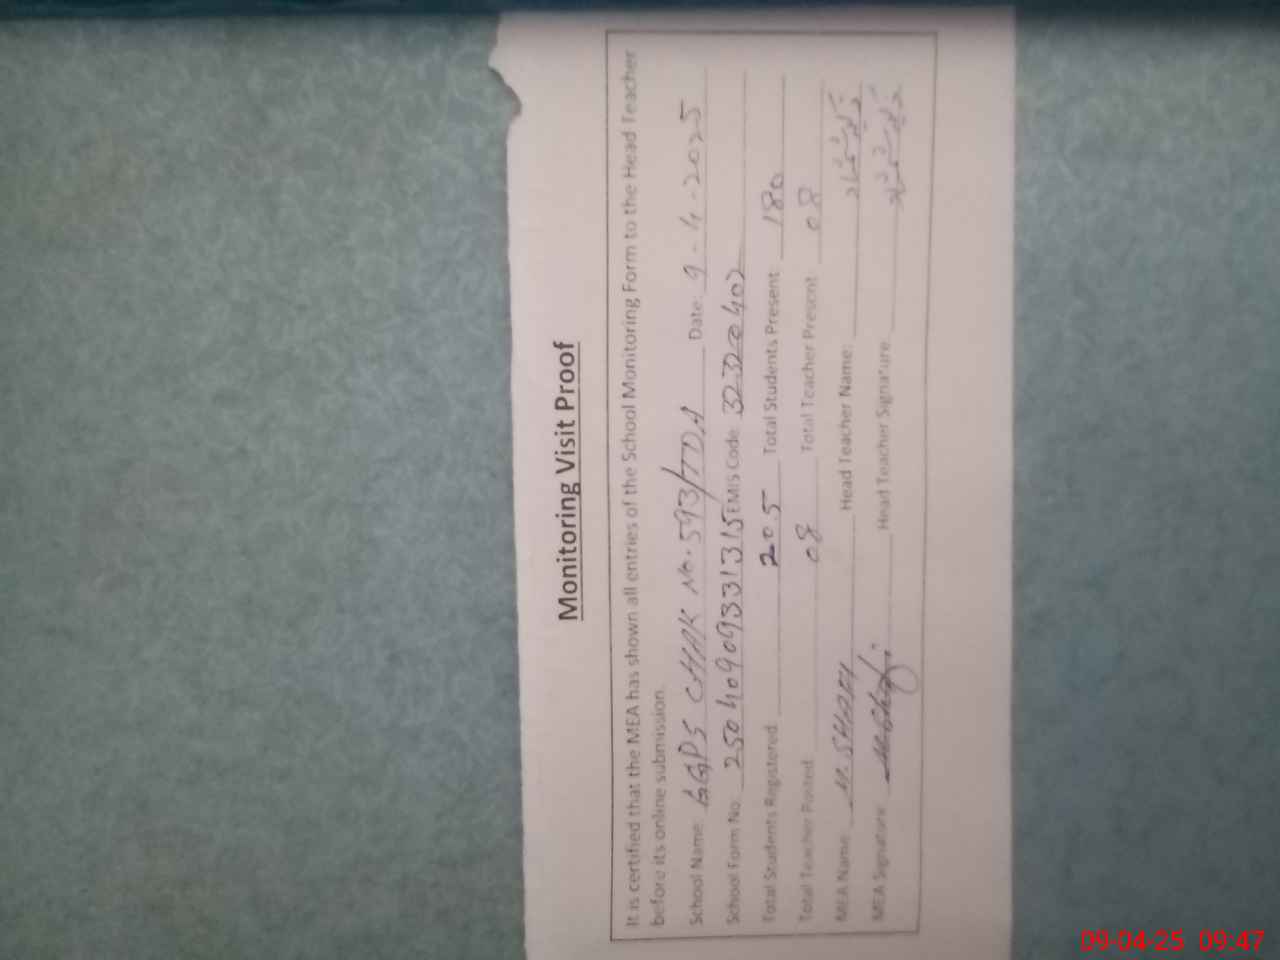 Monitoring Visit Proof
It is certified that the MEA has shown all entries of the School Monitoring Form to the Head Teacher
before its online submission.
School Name: GGPS CHAK No. 593/TDA Date: 9-4-2025
School Form No: 25040909331315 EMIS Code: 32320402
Total Students Registered: 205 Total Students Present 180
Total Teacher Posted: 08 Total Teacher Present 08
MEA Name: M. SHAFI Head Teacher Name:
MEA Signature: Head Teacher Signature
09-04-25 09:47